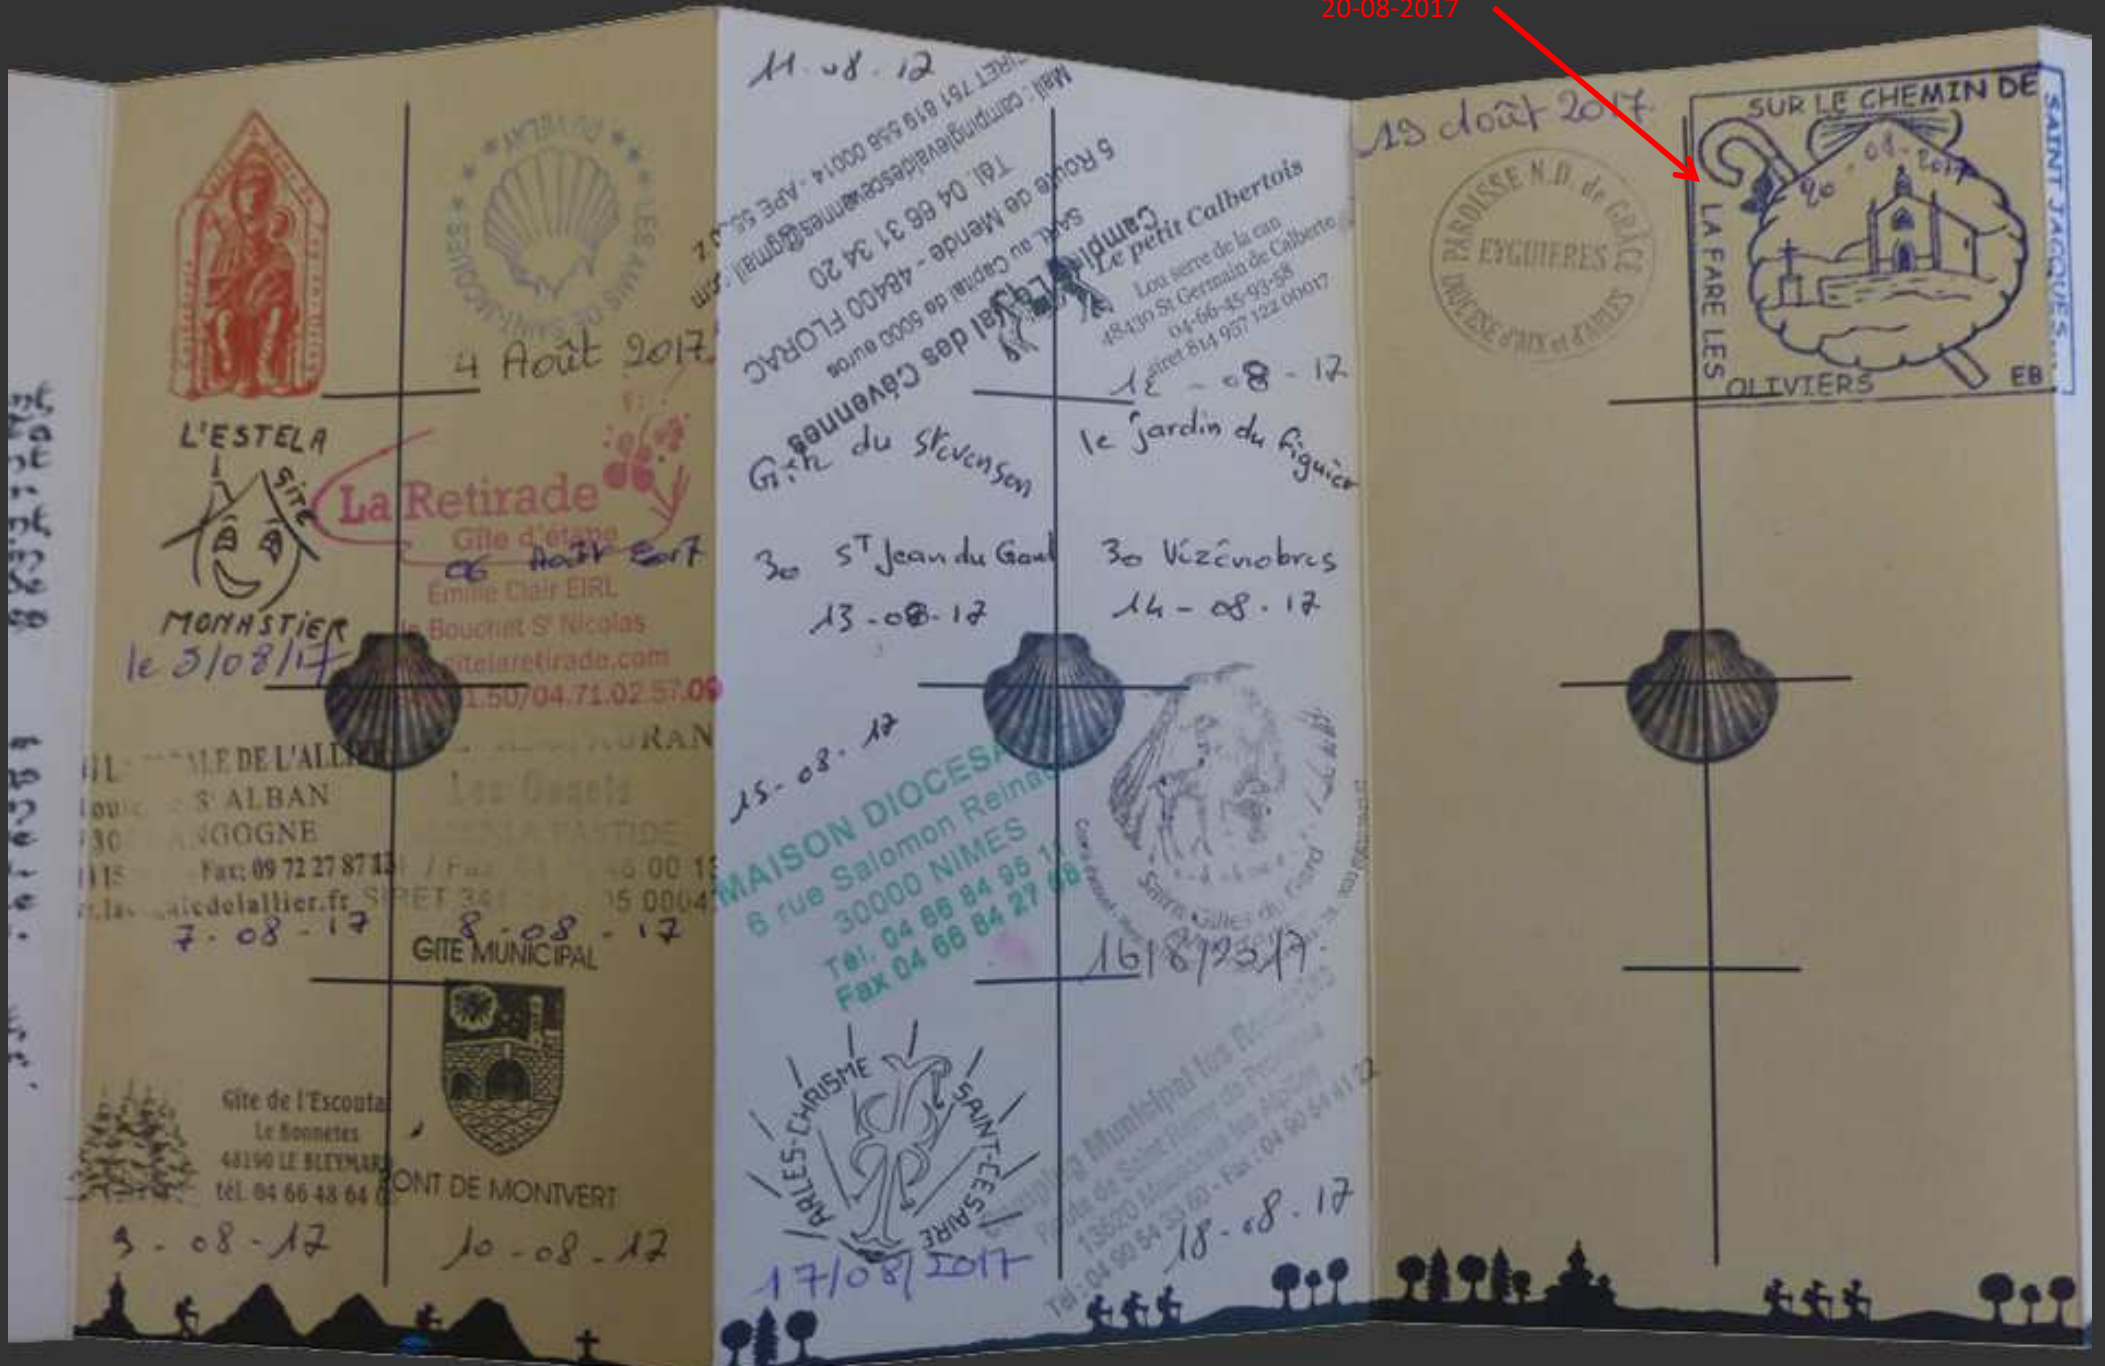 20-08-2017
LES AMIS DE SAINT-JACQUES
DU VELAY
4 Août 2017
L'ESTELA
GITE
MONASTIER
le 5/08/17
La Retirade
Gîte d'étape
06 Août 2017
Emilie Clair EIRL
le Bouchet St Nicolas
gitelaretirade.com
1.50/04.71.02.57.09
DE L'ALLIER
St ALBAN
Fax: 09 72 27 87
delallier.fr SIRET
7-08-17
8-08-17
GITE MUNICIPAL
PONT DE MONTVERT
10-08-17
Gîte de l'Escoutal
Le Bonnetes
48190 LE BLEYMARD
tél. 04 66 48 64
9-08-17
11.08.12
Camping Le Val des Cévennes
SARL au Capital de 5000 euros
5 Route de Mende - 48400 FLORAC
Tél. 04 66 31 34 20
Mail: campinglevaldescevennes@gmail.com
SIRET 751 819 556 00014 - APE
Le petit Calbertois
Lou serre de la can
48430 St Germain de Calberte
04-66-45-93-58
siret 814 957 122 00017
12-08-17
Gîte du Stevenson
30 ST Jean du Gard
13-08-17
le jardin du figuier
30 Vézénobres
14-08-17
15-08-17
MAISON DIOCESAINE
6 rue Salomon Reinach
30000 NIMES
Tél. 04 66 84 95 11
Fax 04 66 84 27
Saint Gilles du Gard
16/8/2017
ARLES-CHRISME
SAINT-CESAIRE
17/08/2017
Camping Municipal les
Route de Saint Remy de Provence
13520 Maussane les Alpilles
Tél : 04 90 54 33 60 - Fax : 04 90 54 41 22
18-08-17
19 Août 2017
PAROISSE N.D. de GRÂCE
EYGUIERES
DIOCESE d'AIX et d'ARLES
SUR LE CHEMIN DE
SAINT JACQUES
20-08-2017
LA FARE LES
OLIVIERS
EB